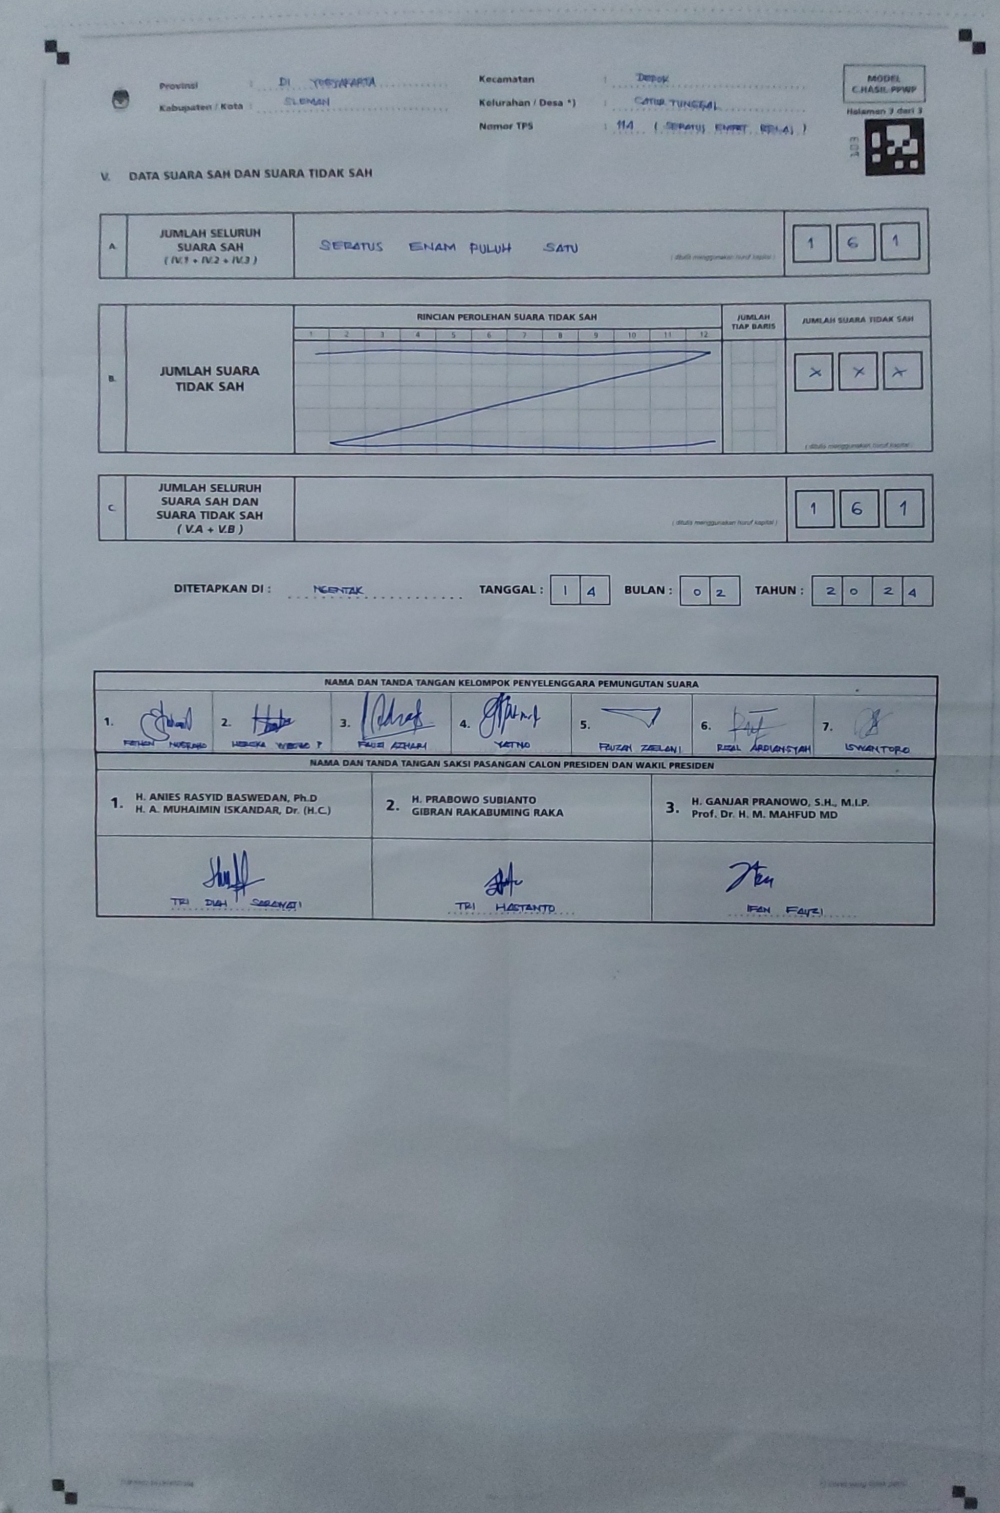 Provinsi : DI YOGYAKARTA
Kabupaten / Kota : SLEMAN
Kecamatan : Depok
Kelurahan / Desa *) : CATUR TUNGGAL
Nomor TPS : 114 ( SERATUS EMPAT BELAS )
MODEL
C.HASIL-PPWP
Halaman 3 dari 3
V. DATA SUARA SAH DAN SUARA TIDAK SAH
A. JUMLAH SELURUH
SUARA SAH
( IV.1 + IV.2 + IV.3 )
SERATUS ENAM PULUH SATU
( ditulis menggunakan huruf kapital )
1 6 1
B. JUMLAH SUARA
TIDAK SAH
RINCIAN PEROLEHAN SUARA TIDAK SAH
1 2 3 4 5 6 7 8 9 10 11 12
JUMLAH
TIAP BARIS
JUMLAH SUARA TIDAK SAH
X X X
( ditulis menggunakan huruf kapital )
C. JUMLAH SELURUH
SUARA SAH DAN
SUARA TIDAK SAH
( V.A + V.B )
( ditulis menggunakan huruf kapital )
1 6 1
DITETAPKAN DI : NGENTAK TANGGAL : 1 4 BULAN : 0 2 TAHUN : 2 0 2 4
NAMA DAN TANDA TANGAN KELOMPOK PENYELENGGARA PEMUNGUTAN SUARA
1. 2. 3. 4. 5. 6. 7.
FAUZI AZHARI YATNO FAUZAN ZAELANI RIZAL ARDIANSYAH ISWANTORO
NAMA DAN TANDA TANGAN SAKSI PASANGAN CALON PRESIDEN DAN WAKIL PRESIDEN
1. H. ANIES RASYID BASWEDAN, Ph.D
H. A. MUHAIMIN ISKANDAR, Dr. (H.C.)
2. H. PRABOWO SUBIANTO
GIBRAN RAKABUMING RAKA
3. H. GANJAR PRANOWO, S.H., M.I.P.
Prof. Dr. H. M. MAHFUD MD
TRI DIAH SARAWATI
TRI HASTANTO
IFAN FAUZI